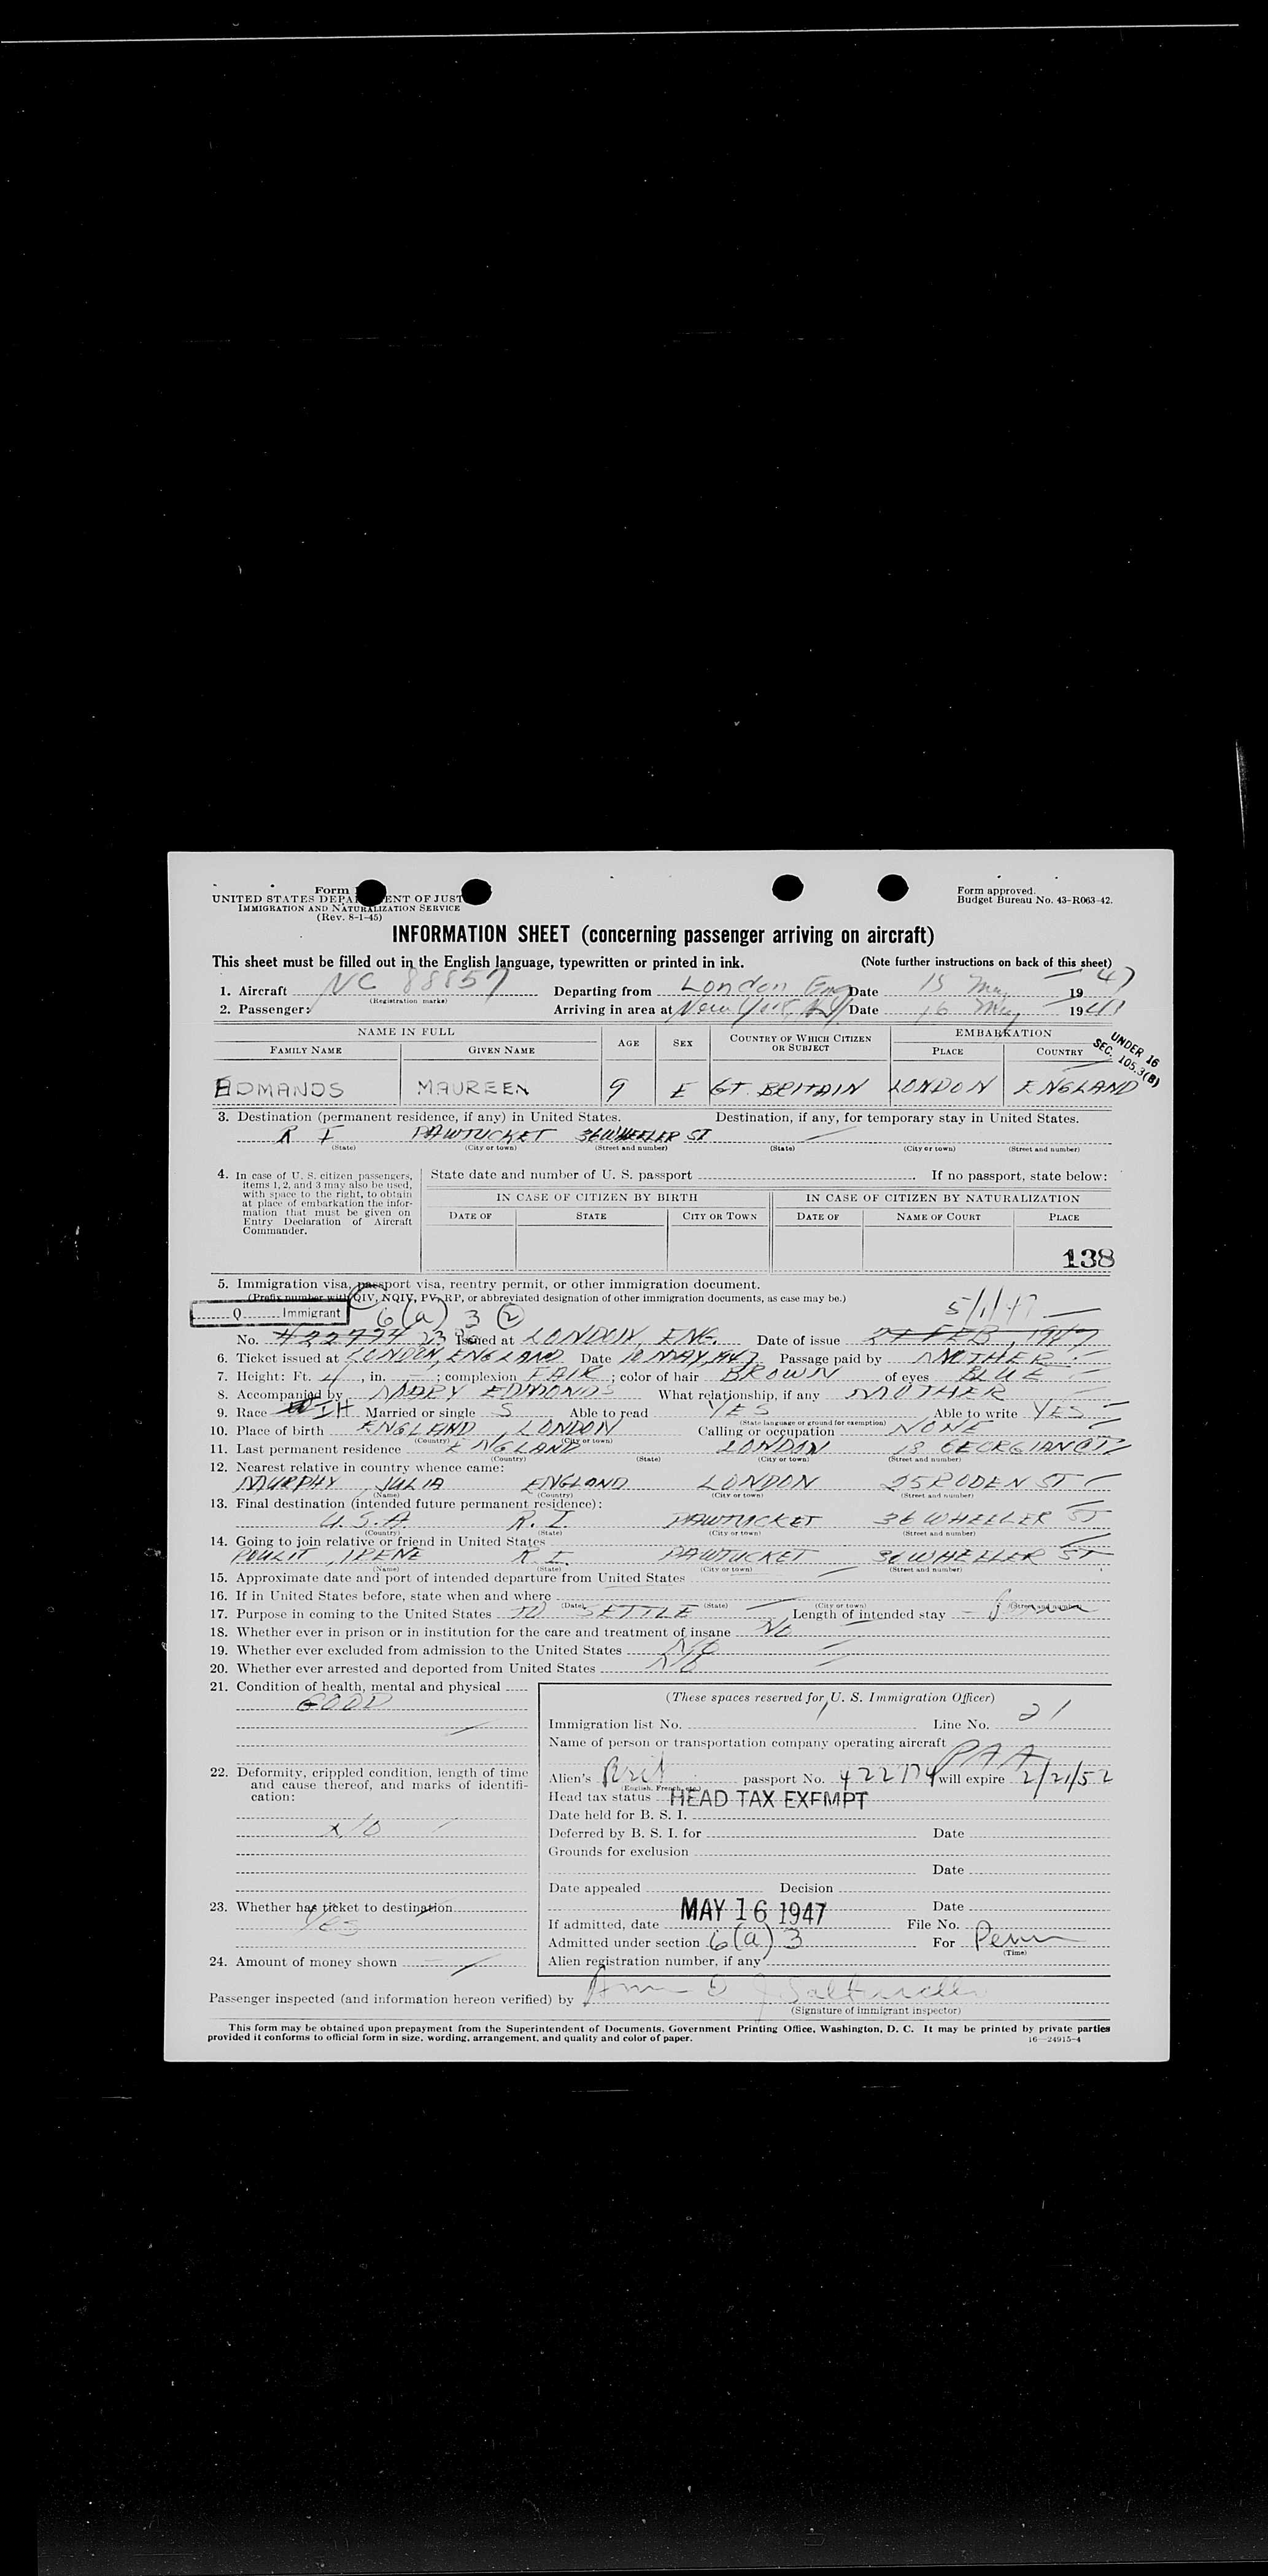 Form
UNITED STATES DEPA ENT OF JUST
IMMIGRATION AND NATURALIZATION SERVICE
(Rev. 8-1-45)
Form approved.
Budget Bureau No. 43-R063-42.
INFORMATION SHEET (concerning passenger arriving on aircraft)
This sheet must be filled out in the English language, typewritten or printed in ink.
(Note further instructions on back of this sheet)
1. Aircraft NC 88857 Departing from London Eng Date 15 May 1947
(Registration marks)
2. Passenger: Arriving in area at New York, NY Date 16 May 1947
NAME IN FULL AGE SEX COUNTRY OF WHICH CITIZEN OR SUBJECT EMBARKATION
FAMILY NAME GIVEN NAME PLACE COUNTRY
UNDER 16
SEC. 105.3(B)
EDMANDS MAUREEN 9 F GT. BRITAIN LONDON ENGLAND
3. Destination (permanent residence, if any) in United States. Destination, if any, for temporary stay in United States.
R I PAWTUCKET 36 WHEELER ST
(State) (City or town) (Street and number) (State) (City or town) (Street and number)
4. In case of U. S. citizen passengers, items 1, 2, and 3 may also be used, with space to the right, to obtain at place of embarkation the information that must be given on Entry Declaration of Aircraft Commander.
State date and number of U. S. passport If no passport, state below:
IN CASE OF CITIZEN BY BIRTH IN CASE OF CITIZEN BY NATURALIZATION
DATE OF STATE CITY OR TOWN DATE OF NAME OF COURT PLACE
138
5. Immigration visa, passport visa, reentry permit, or other immigration document.
(Prefix number with QIV, NQIV, PV, RP, or abbreviated designation of other immigration documents, as case may be.)
Q Immigrant 6(a) 3 2 5/1/47
No. Issued at LONDON ENG. Date of issue 21 FEB, 1947
6. Ticket issued at LONDON, ENGLAND Date 10 MAY, 1947 Passage paid by MOTHER
7. Height: Ft. 4, in. ; complexion FAIR; color of hair BROWN of eyes BLUE
8. Accompanied by MARY EDMONDS What relationship, if any MOTHER
9. Race IH Married or single S Able to read YES Able to write YES
(State language or ground for exemption)
10. Place of birth ENGLAND, LONDON Calling or occupation NONE
(Country) (City or town)
11. Last permanent residence ENGLAND LONDON 18 GEORGIANA ST
(Country) (State) (City or town) (Street and number)
12. Nearest relative in country whence came:
MURPHY JULIA ENGLAND LONDON 25 RODEN ST
(Name) (Country) (City or town) (Street and number)
13. Final destination (intended future permanent residence):
U.S.A R.I. PAWTUCKET 36 WHEELER ST
(Country) (State) (City or town) (Street and number)
14. Going to join relative or friend in United States
POULIT, IRENE R I. PAWTUCKET 36 WHEELER ST
(Name) (State) (City or town) (Street and number)
15. Approximate date and port of intended departure from United States
16. If in United States before, state when and where
(Date) (State) (City or town) (Street and number)
17. Purpose in coming to the United States TO SETTLE Length of intended stay Perm
18. Whether ever in prison or in institution for the care and treatment of insane NO
19. Whether ever excluded from admission to the United States NO
20. Whether ever arrested and deported from United States NO
21. Condition of health, mental and physical
GOOD
22. Deformity, crippled condition, length of time and cause thereof, and marks of identification:
NO
23. Whether has ticket to destination
Yes
24. Amount of money shown
(These spaces reserved for U. S. Immigration Officer)
Immigration list No. 1 Line No. 21
Name of person or transportation company operating aircraft PAA
Alien's Brit passport No. 422174 will expire 2/21/52
(English, French, etc.)
Head tax status HEAD TAX EXEMPT
Date held for B. S. I.
Deferred by B. S. I. for Date
Grounds for exclusion
Date
Date appealed Decision
Date
If admitted, date MAY 16 1947 File No.
Admitted under section 6(a) 3 For Perm
(Time)
Alien registration number, if any
Passenger inspected (and information hereon verified) by
(Signature of immigrant inspector)
This form may be obtained upon prepayment from the Superintendent of Documents, Government Printing Office, Washington, D. C. It may be printed by private parties
provided it conforms to official form in size, wording, arrangement, and quality and color of paper.
16—24915-4